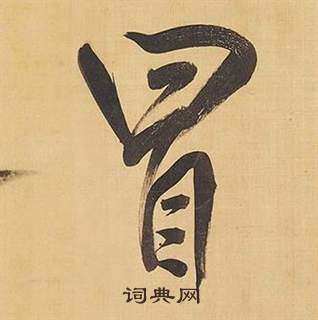 冒
词典网